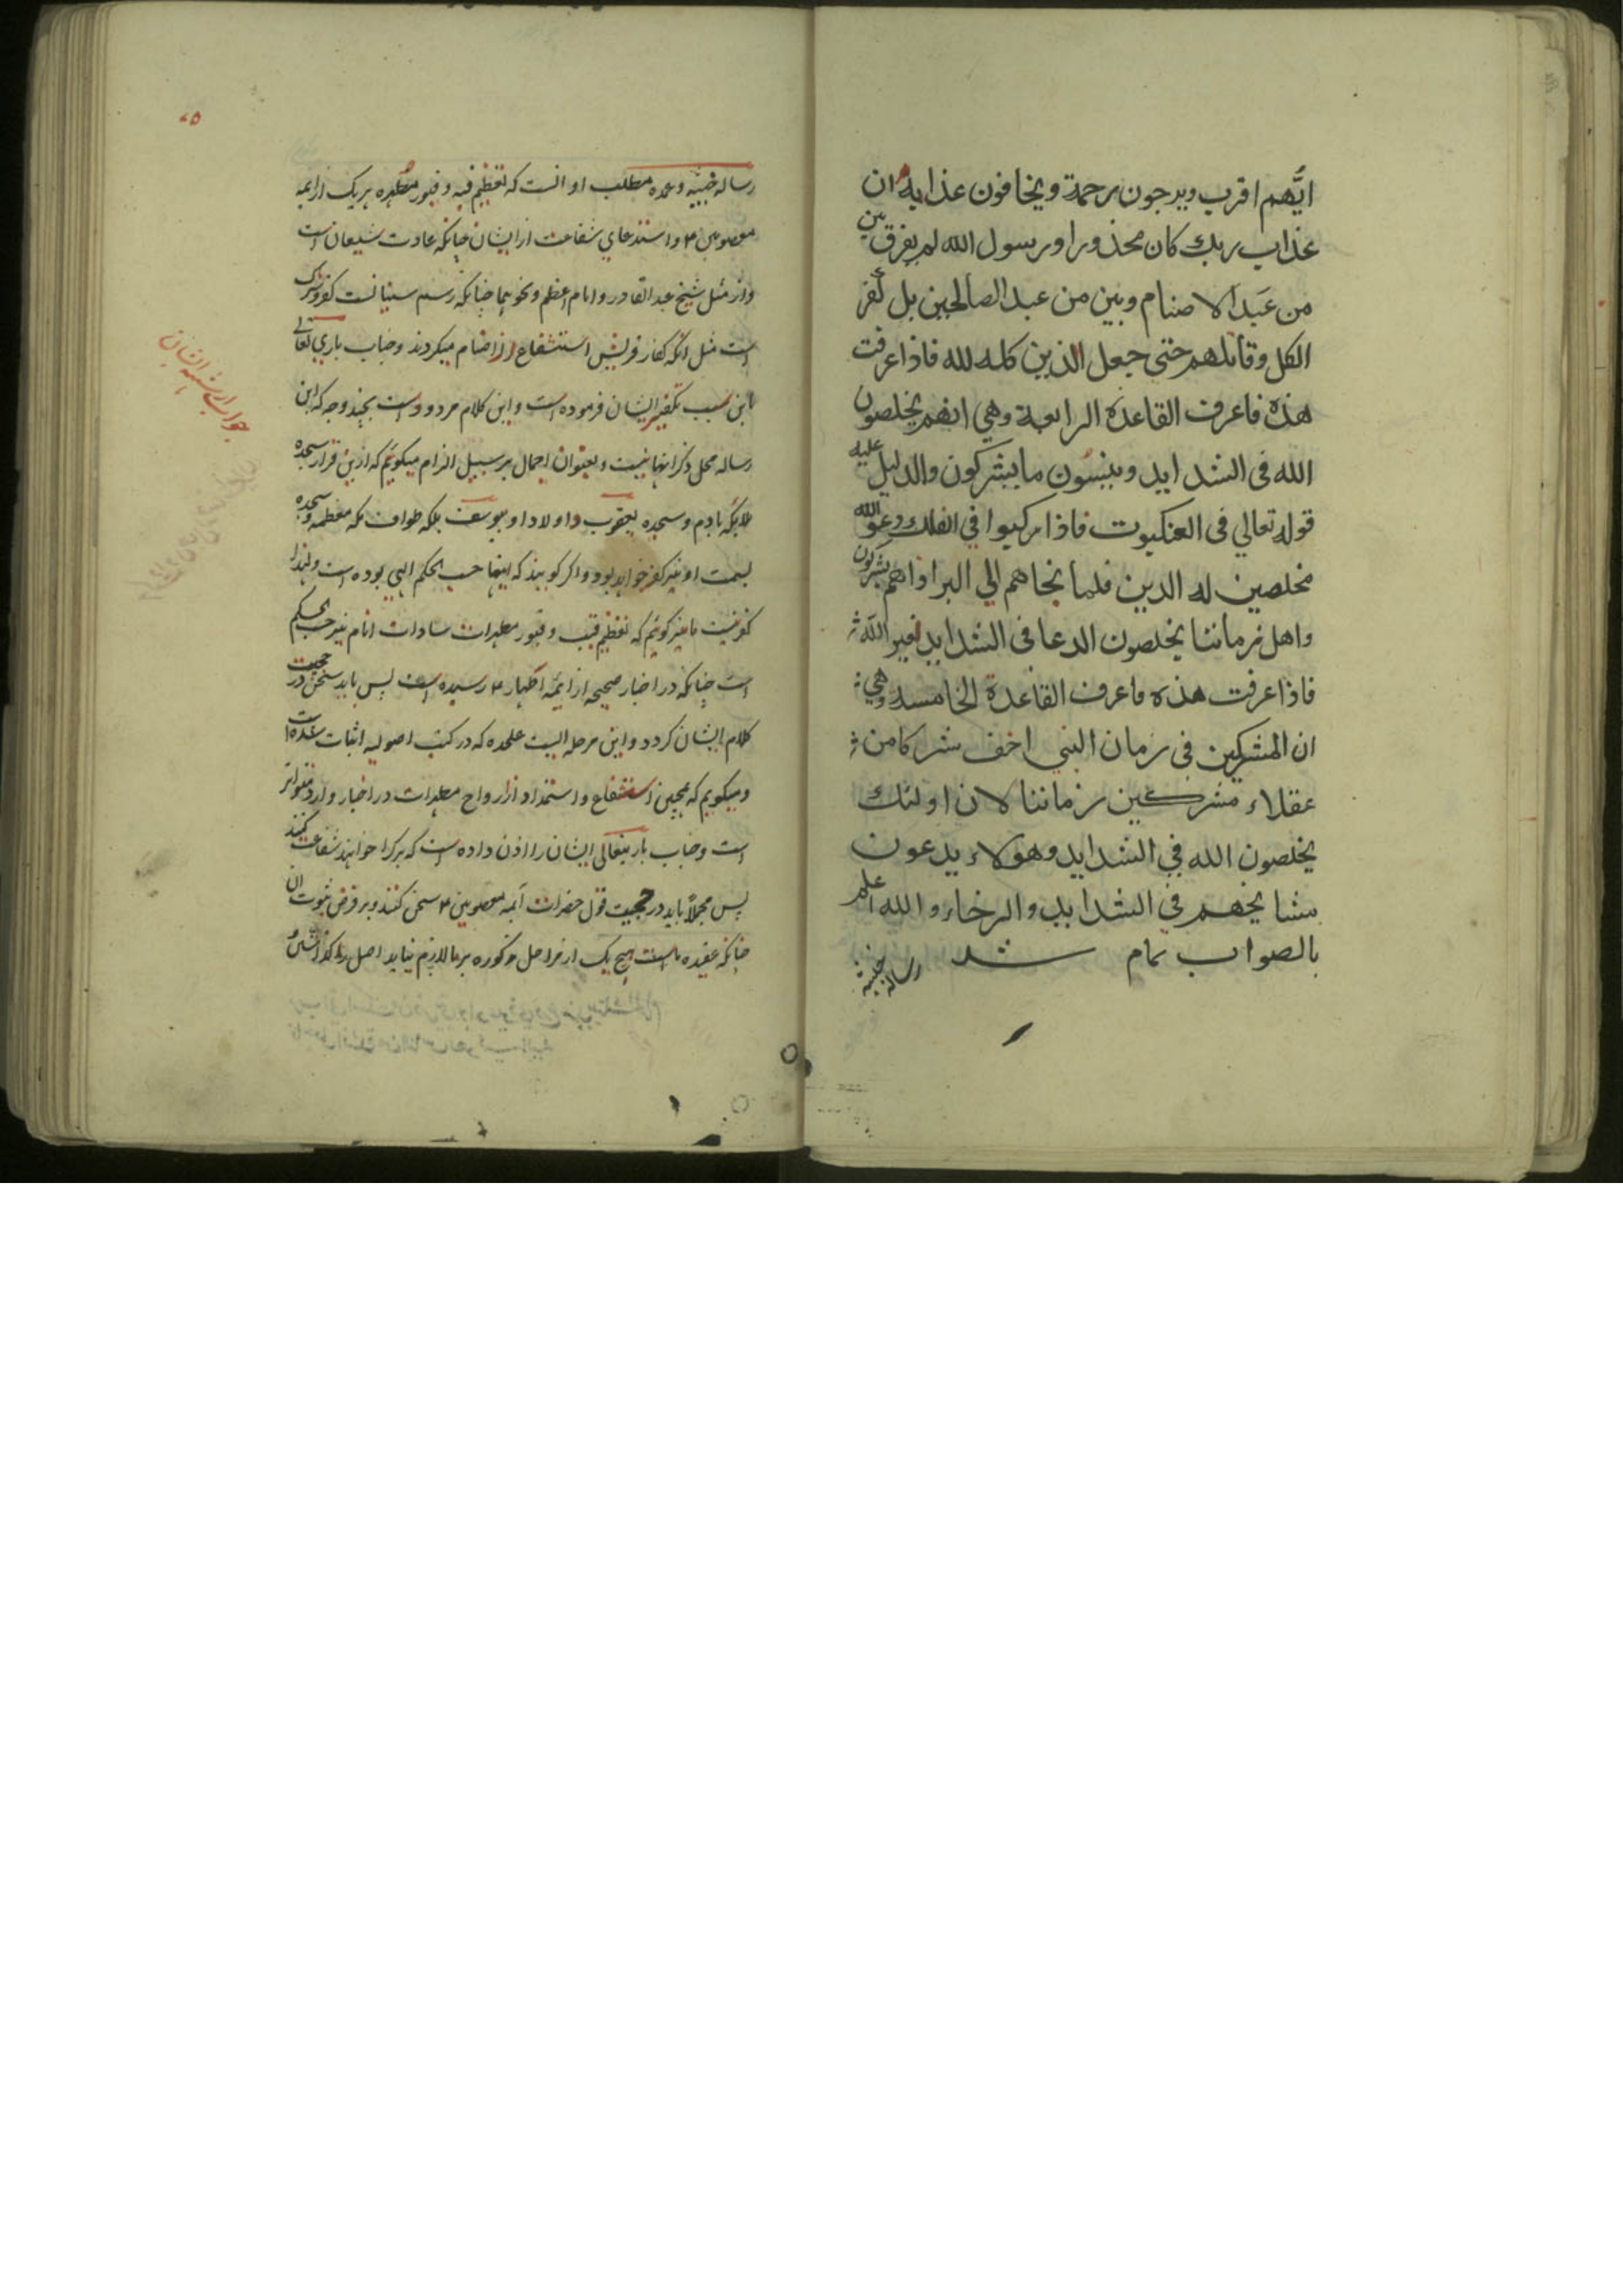 ايُّهم اقرب ويرجون رحمة ويخافون عذابه ان
عذاب ربك كان محذورا ورسول الله لم يفرق بين
من عَبَدَ الاصنام وبين من عبد الصالحين بل كفر
الكل وقاتلهم حتى جعل الدين كله لله فاذا عرفت
هذه فاعرف القاعدة الرابعة وهي انهم يخلصون
الله فى الشدايد وينسون ما يشركون والدليل عليه
قوله تعالي فى العنكبوت فاذا ركبوا في الفلك دعو الله
مخلصين له الدين فلما نجاهم الي البر اذا هم يشركون
واهل زماننا يخلصون الدعا فى الشدايد لغير الله
فاذا عرفت هذه فاعرف القاعدة الخامسة وهي
ان المشركين فى زمان النبي اخف شركا من
عقلاء مشركين زماننا لان اولئك
يخلصون الله في الشدايد وهولاء يدعون
مشايخهم في الشدايد والرخاء والله اعلم
بالصواب تمام شد
رساله خبيثه
رساله خبیثه و عمده مطلب او انست که تعظیم قبه و قبور مطهره هر یک از ائمه
معصومین ۴ و استدعای شفاعت از ایشان چنانکه عادت شیعان است
واز مثل شیخ عبد القادر و امام اعظم و نحوهما چنانکه رسم سنیانست کفر و شرک
است مثل انکه کفار قریش استشفاع از اصنام میکردند و جناب باری تعالی
باین سبب تکفیر ایشان فرموده است و این کلام مردود است بچند وجه که این
رساله محل ذکر انها نیست و بعنوان اجمال بر سبیل الزام میکوئیم که ازین قرار سجده
ملائکه بادم و سجده یعقوب و اولاد او بیوسف بلکه طواف مکه معظمه و سجده
بسمت او نیز کفر خواهد بود و اکر کویند که اینها حسب الحکم الهی بوده است و لهذا
کفر نیست ما نیز کوئیم که تعظیم قبب و قبور مطهرات سادات انام نیز حسب الحکم
است چنانکه در اخبار صحیحه از ائمه اطهار ۴ رسیده است پس باید سخن در حجیت
کلام ایشان کردد و این مرحله ایست علیحده که در کتب اصولیه اثبات شده است
و میکویم که همچنین استشفاع و استمداد از ارواح مطهرات در اخبار وارد متواتر
است و جناب باریتعالی ایشان را اذن داده است که هر کرا خواهند شفاعت کنند
پس مجملاً باید در حجیت قول حضرات ائمه معصومین ۴ سخن کنند و بر فرض ثبوت ان
چنانکه عقیده ماست هیچ یک از مراحل مذکوره بر ما لازم نیاید اصل را کذاشتن
جواب از شبهه ایشان